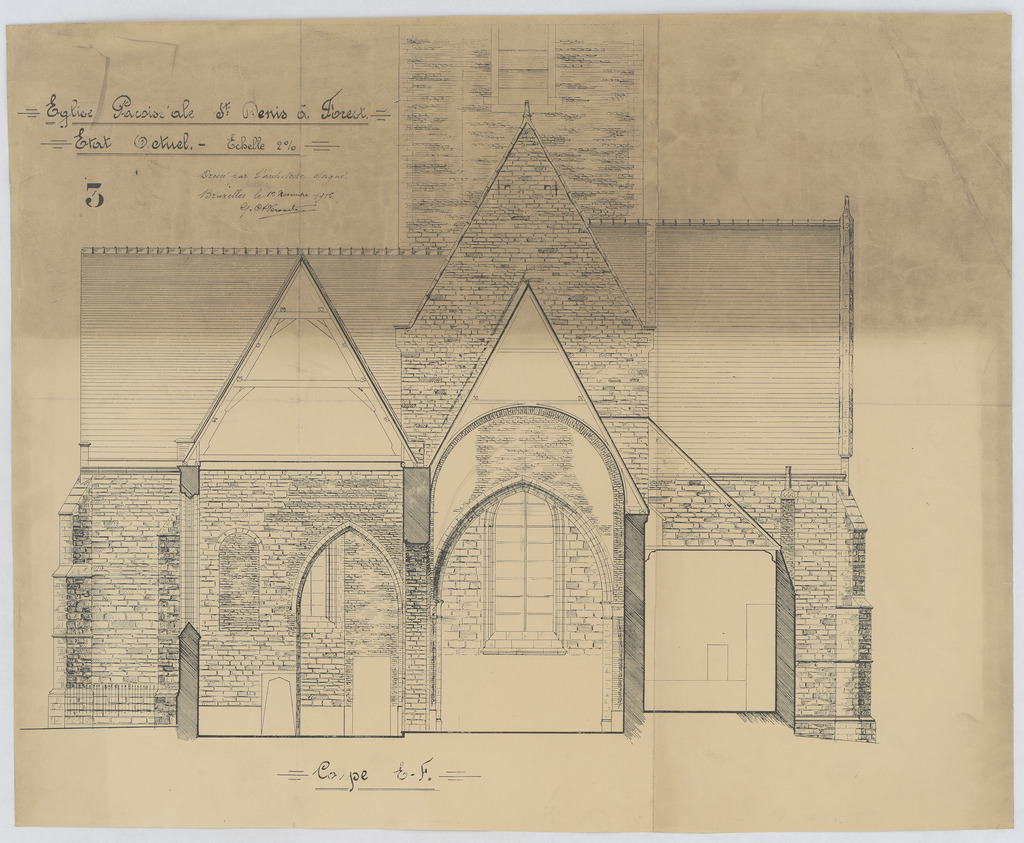 Eglise Paroissiale St Denis à Forest.
Etat Actuel. - Echelle 2%
3
Dressé par l'architecte soussigné
Bruxelles le 1er Décembre
Coupe E-F.